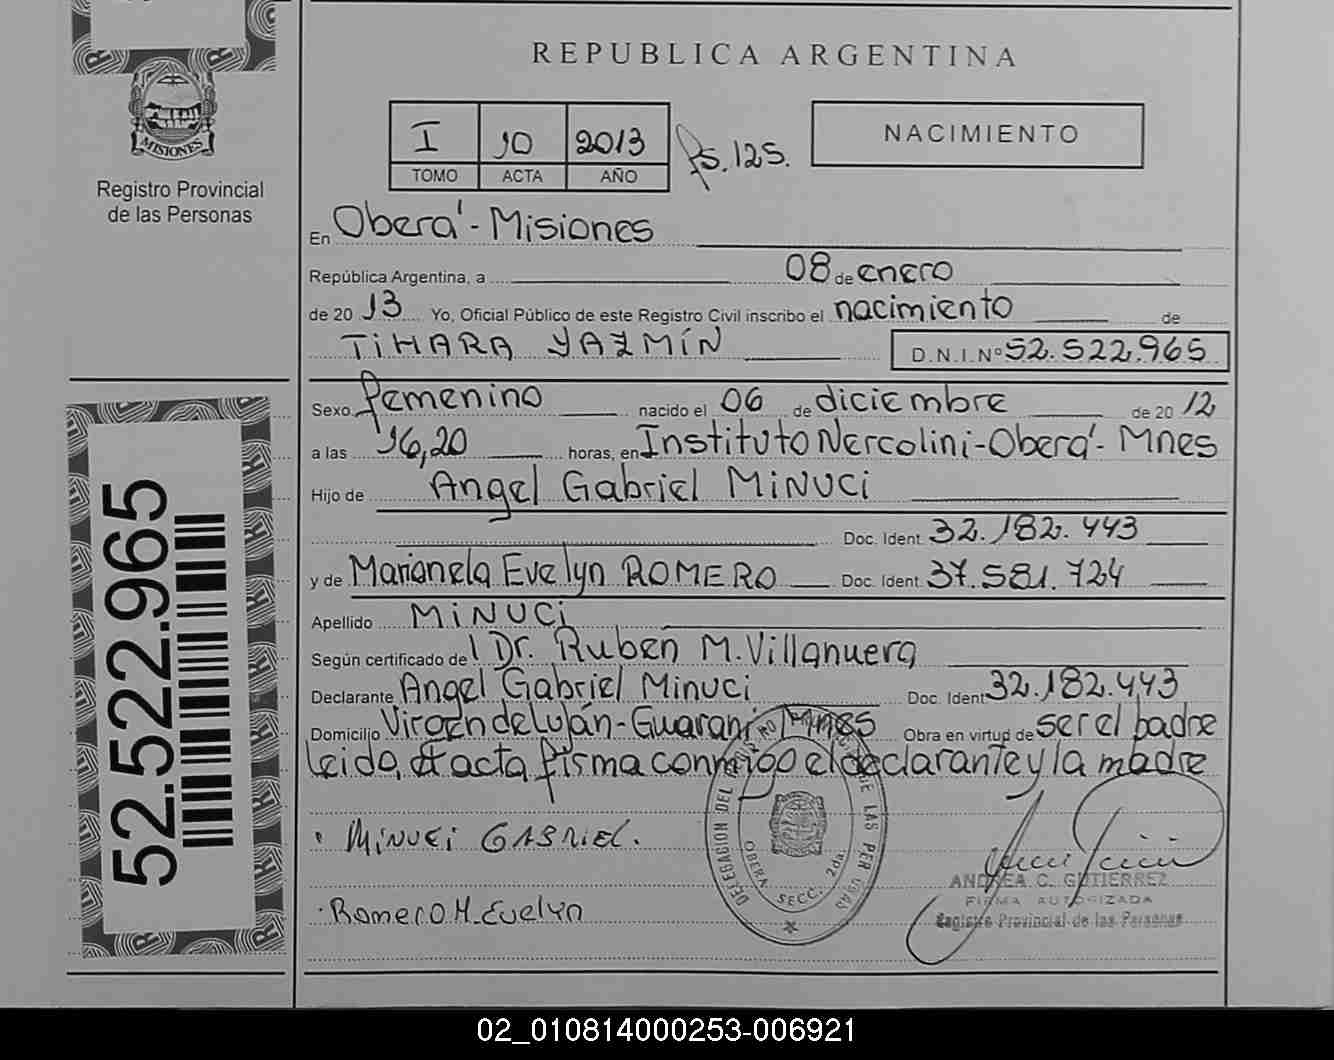 REPUBLICA ARGENTINA
MISIONES
Registro Provincial
de las Personas
I 10 2013 Fs. 125.
TOMO ACTA AÑO
NACIMIENTO
En Oberá - Misiones
República Argentina, a 08 de enero
de 20 13 Yo, Oficial Público de este Registro Civil inscribo el nacimiento de
TIHARA YAZMÍN D.N.I. Nº 52.522.965
Sexo femenino nacido el 06 de diciembre de 20 12
a las 16,20 horas, en Instituto Nercolini - Oberá - Mnes
Hijo de Angel Gabriel MINUCI
Doc. Ident. 32.182.443
y de Marianela Evelyn ROMERO Doc. Ident. 37.581.724
Apellido MINUCI
Según certificado del Dr. Ruben M. Villanueva
Declarante Angel Gabriel Minuci Doc. Ident 32.182.443
Domicilio Virgen de Luján - Guarani Mnes Obra en virtud de ser el padre
leida, el acta firma conmigo el declarante y la madre
MINUCI GABRIEL.
Romero M. Evelyn
DELEGACION DEL REGISTRO DE LAS PERSONAS
OBERA SECC. 2da.
ANDREA C. GUTIERREZ
FIRMA AUTORIZADA
Registro Provincial de las Personas
52.522.965
02_010814000253-006921